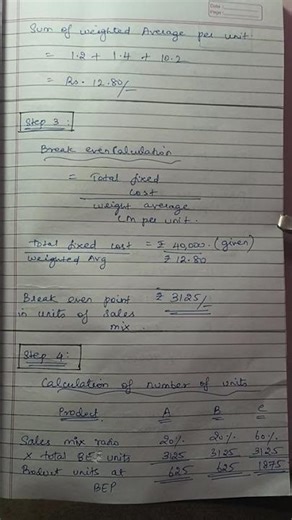 Date
Page
Sum of weighted Average per unit
= 1.2 + 1.4 + 10.2
= Rs. 12.80/-
Step 3:
Break even Calculation
= Total fixed
cost
weight average
CM per unit.
Total fixed cost = ₹ 40,000. (given)
Weighted Avg ₹ 12.80
Break even point ₹ 3125/-
in units of sales
mix.
Step 4:
Calculation of number of units
Product A B C
Sales mix ratio 20% 20% 60%
X total BES units 3125 3125 3125
Product units at 625 625 1875
BEP